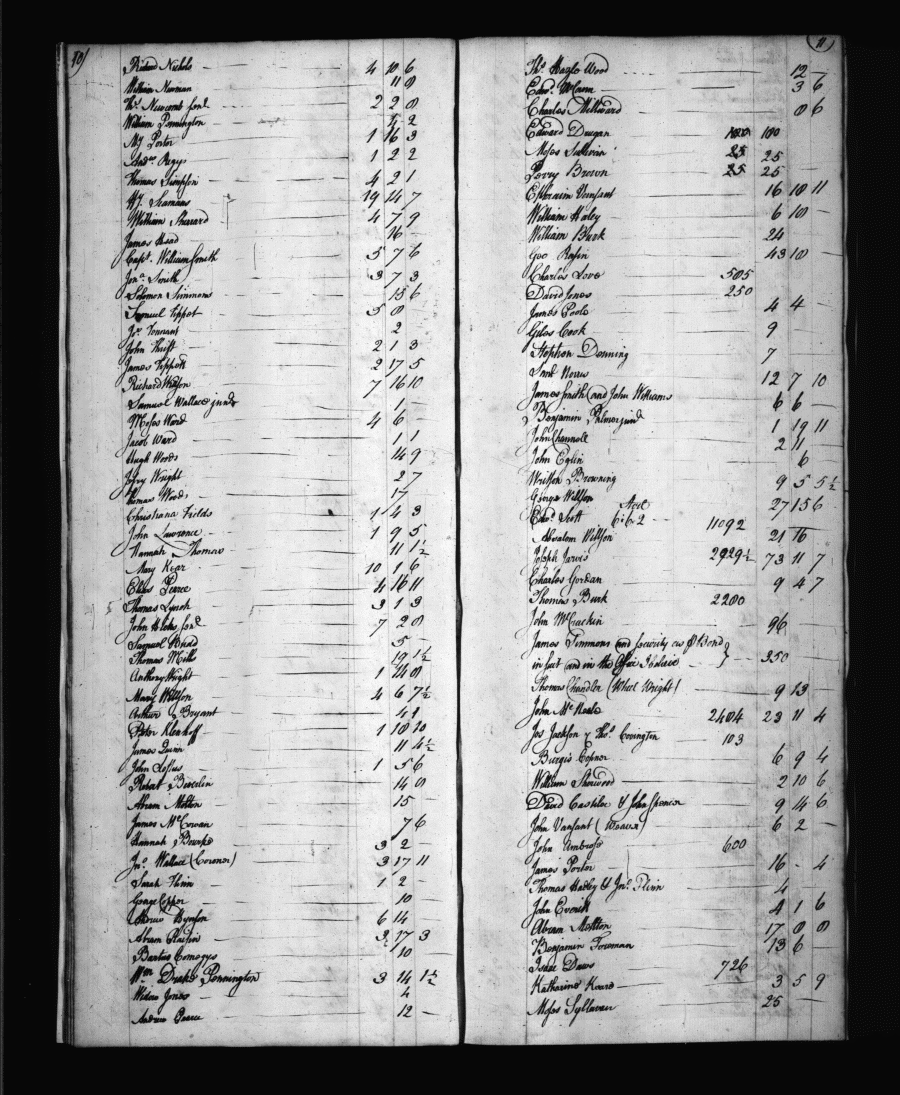 10)
Richard Nichols 4 10 6
William Newman 11 9
Thos. Newcomb 2 2 8
William Pennington 2
Wm. Porter 1 16 3
1 2 2
Thomas Simpson 4 2 1
Wm. Seamans 19 14 7
William Sherrard 4 7 9
James Head 16 —
Capt. William Smith 5 7 6
Jona. Smith 3 7 3
Solomon Simmons 15 6
Samuel Tippet 5 8
Jno Tennant 2
John Thrift 2 1 3
James Tippett 2 17 5
Richard Willson 7 16 10
Samuel Wallace junr 1 —
Moses Ward 4 6 —
Jacob Ward 1 1
Hugh Woods 14 9
Wright 2 7
Thomas Woods 17
Christiana Fields 1 4 3
John Lawrence 1 9 5
Hannah Thomas 11 1½
Mary Kear 10 1 6
Elias Pearce 4 16 11
Thomas Lynch 3 1 3
John 7 2 8
Samuel 5 —
Thomas Mills 19 1½
Anthony Wright 1 14 8
Mary Willson 4 6 7½
Arthur Bryant
Peter Klenhoff 1 10 10
James Quinn 11 4½
John Loftus 1 5 6
Robert 14 8
Abram Motton 15 —
James McCowan 7 6
Hannah 3 2 —
Jno. Wallace (Coroner) 3 17 11
Sarah Flinn 1 2 —
George Copper 10
Hynson 6 14
Abram 3 17 3
Bartus Comegys 10 —
Wm. Drake Pennington 3 14 1½
Widow Jones 4
Andrew Pearce 12 —
11)
Thos. Hazle Wood 12 —
Edwd. McCann 3 6
Charles Millward 8 6
Edward Dougan 100 100
Moses Sullivin 25 25
Perry Brown 25 25
Ephraim Vansant 16 10 11
William Haley 6 10 —
William Burk 24
Geo. Rasin 43 10 —
Charles Love 505
David Jones 250
James Poole 4 4 —
Giles Cook 9
Stephen Denning 7
Norris 12 7 10
James Smith and John Williams 6 6 —
Benjamin Palmer junr 1 19 11
John Channell 2 11
John Eglin 6
Writson Browning 9 5 5½
George Willson 27 15 6
Edwd. Scott 6:6:2 11092
Absalom Willson 21 16
Joseph Jarvis 2929½ 73 11 7
Charles Gordan 9 4 7
Thomas Burk 2280
John McCrackin 96
James Timmons and security as Bond
in suit and in the Office I believe } 350
Thomas Chandler (Wheel Wright) 9 13
John McNeale 2404 23 11 4
Jos Jackson & Thos. Covington 103
Burgis Copner 6 9 4
William Sherwood 2 10 6
David Casteloe & John Spencer 9 4 6
John Vansant (Weaver) 6 2 —
John Ambrose 600
James Porter 16 - 4
Thomas Hadley & Jno. Flinn 4
John Everitt 4 1 6
Abram Motton 17 8 8
Benjamin Foreman 13 6
Isaac Daws 726
Katharine 3 5 9
Moses Syllaven 25 —